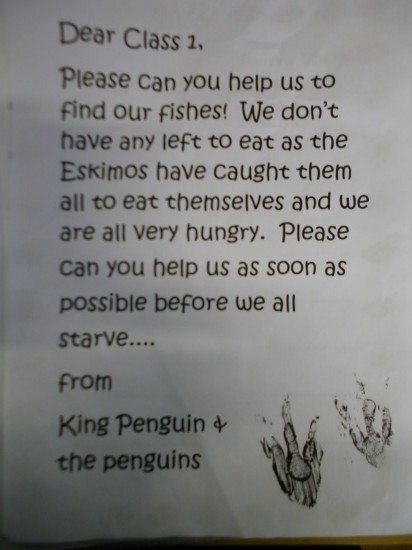 Dear Class 1,
Please can you help us to
find our fishes!  We don't
have any left to eat as the
Eskimos have caught them
all to eat themselves and we
are all very hungry.  Please
can you help us as soon as
possible before we all
starve....
from
King Penguin &
the penguins